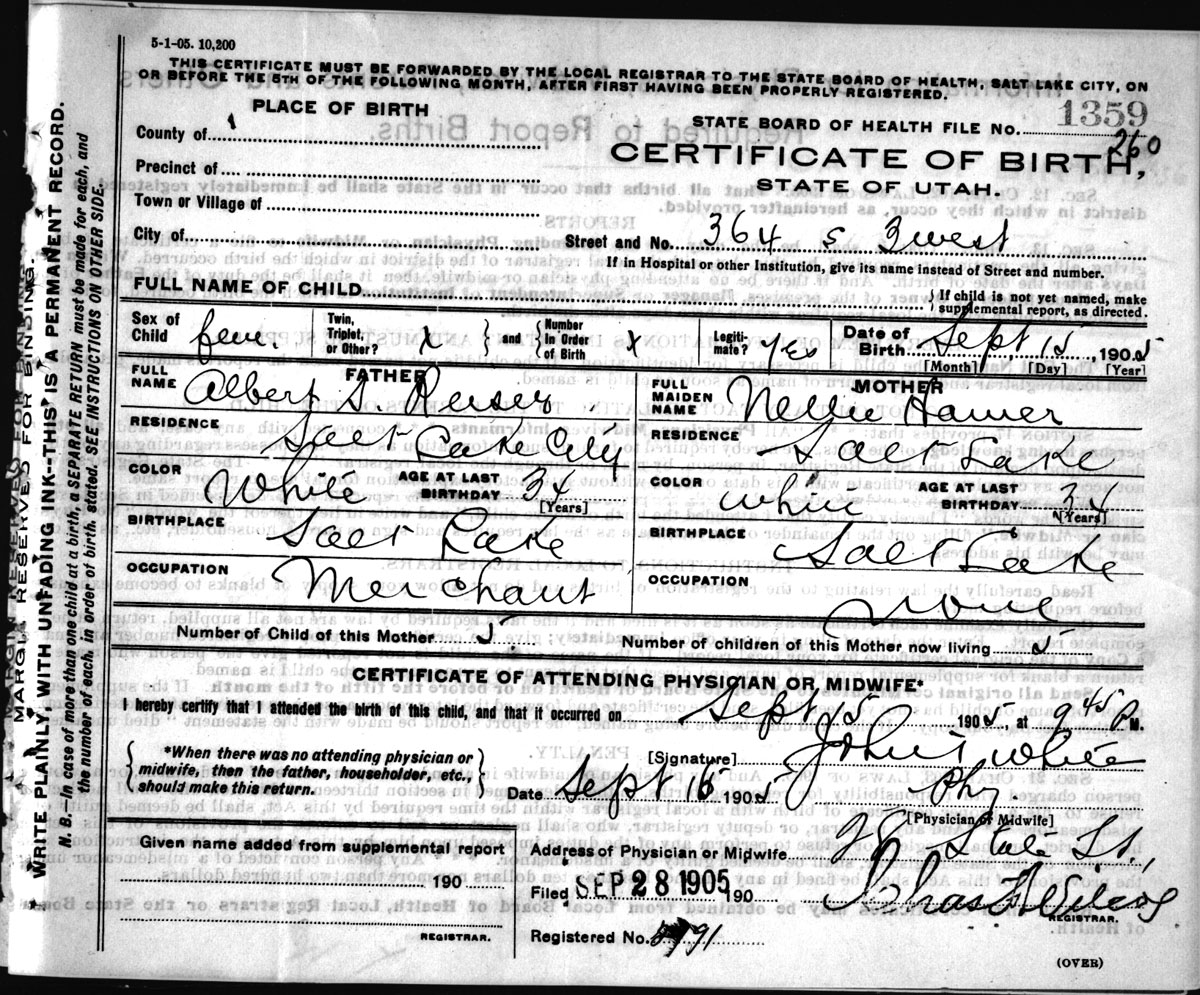 5-1-05. 10,200
THIS CERTIFICATE MUST BE FORWARDED BY THE LOCAL REGISTRAR TO THE STATE BOARD OF HEALTH, SALT LAKE CITY, ON
OR BEFORE THE 5TH OF THE FOLLOWING MONTH, AFTER FIRST HAVING BEEN PROPERLY REGISTERED.
PLACE OF BIRTH
STATE BOARD OF HEALTH FILE NO. 1359
260
County of
CERTIFICATE OF BIRTH,
Precinct of
STATE OF UTAH.
Town or Village of
City of
Street and No. 364 S 3 west
If in Hospital or other Institution, give its name instead of Street and number.
FULL NAME OF CHILD
If child is not yet named, make supplemental report, as directed.
Sex of Child fem.
Twin, Triplet, or Other? X
and Number in Order of Birth X
Legitimate? Yes
Date of Birth Sept 15, 1905
[Month] [Day] [Year]
FATHER
FULL NAME Albert S Reiser
RESIDENCE Salt Lake City
COLOR White AGE AT LAST BIRTHDAY 34
[Years]
BIRTHPLACE Salt Lake
OCCUPATION Merchant
MOTHER
FULL MAIDEN NAME Nellie Hamer
RESIDENCE Salt Lake
COLOR White AGE AT LAST BIRTHDAY 34
[Years]
BIRTHPLACE Salt Lake
OCCUPATION None
Number of Child of this Mother 5
Number of children of this Mother now living 5
CERTIFICATE OF ATTENDING PHYSICIAN OR MIDWIFE*
I hereby certify that I attended the birth of this child, and that it occurred on Sept 15 1905, at 9 45 P M.
*When there was no attending physician or
midwife, then the father, householder, etc.,
should make this return.
[Signature] John T White
Phy.
Date Sept 16 1905
[Physician or Midwife]
Given name added from supplemental report
190
REGISTRAR.
Address of Physician or Midwife State St,
Filed SEP 28 1905 190
REGISTRAR.
Registered No.
(OVER)
MARGIN RESERVED FOR BINDING
WRITE PLAINLY WITH UNFADING INK--THIS IS A PERMANENT RECORD.
N. B.--In case of more than one child at a birth, a SEPARATE RETURN must be made for each, and
the number of each, in order of birth, stated. SEE INSTRUCTIONS ON OTHER SIDE.